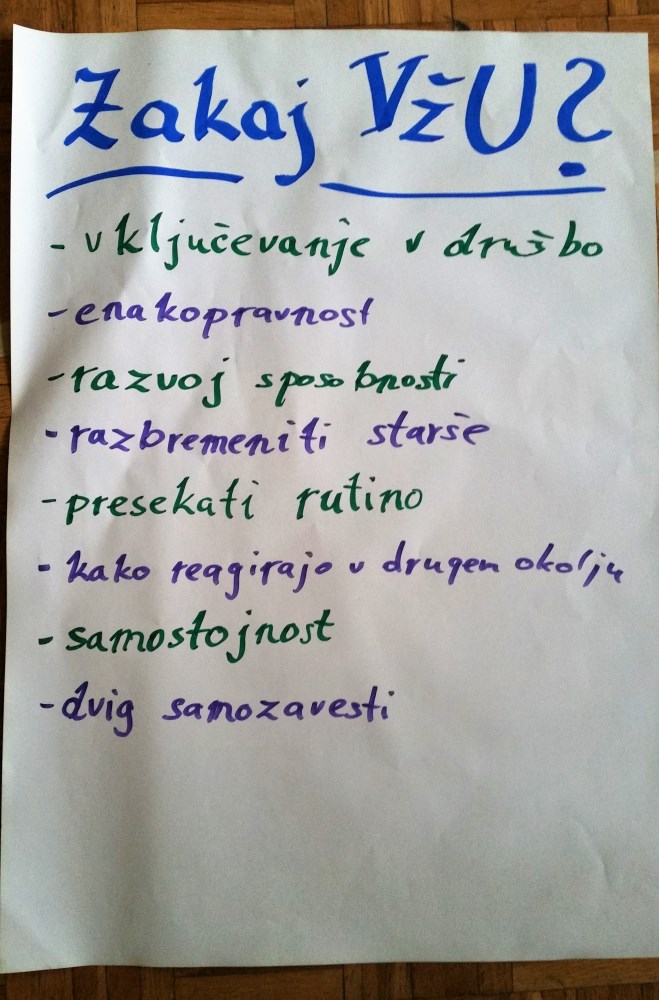 Zakaj VžU?
- vključevanje v družbo
- enakopravnost
- razvoj sposobnosti
- razbremeniti starše
- presekati rutino
- kako reagirajo v drugem okolju
- samostojnost
- dvig samozavesti